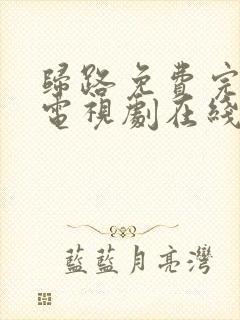 歸路免費完
電視劇在綫
藍藍月亮灣